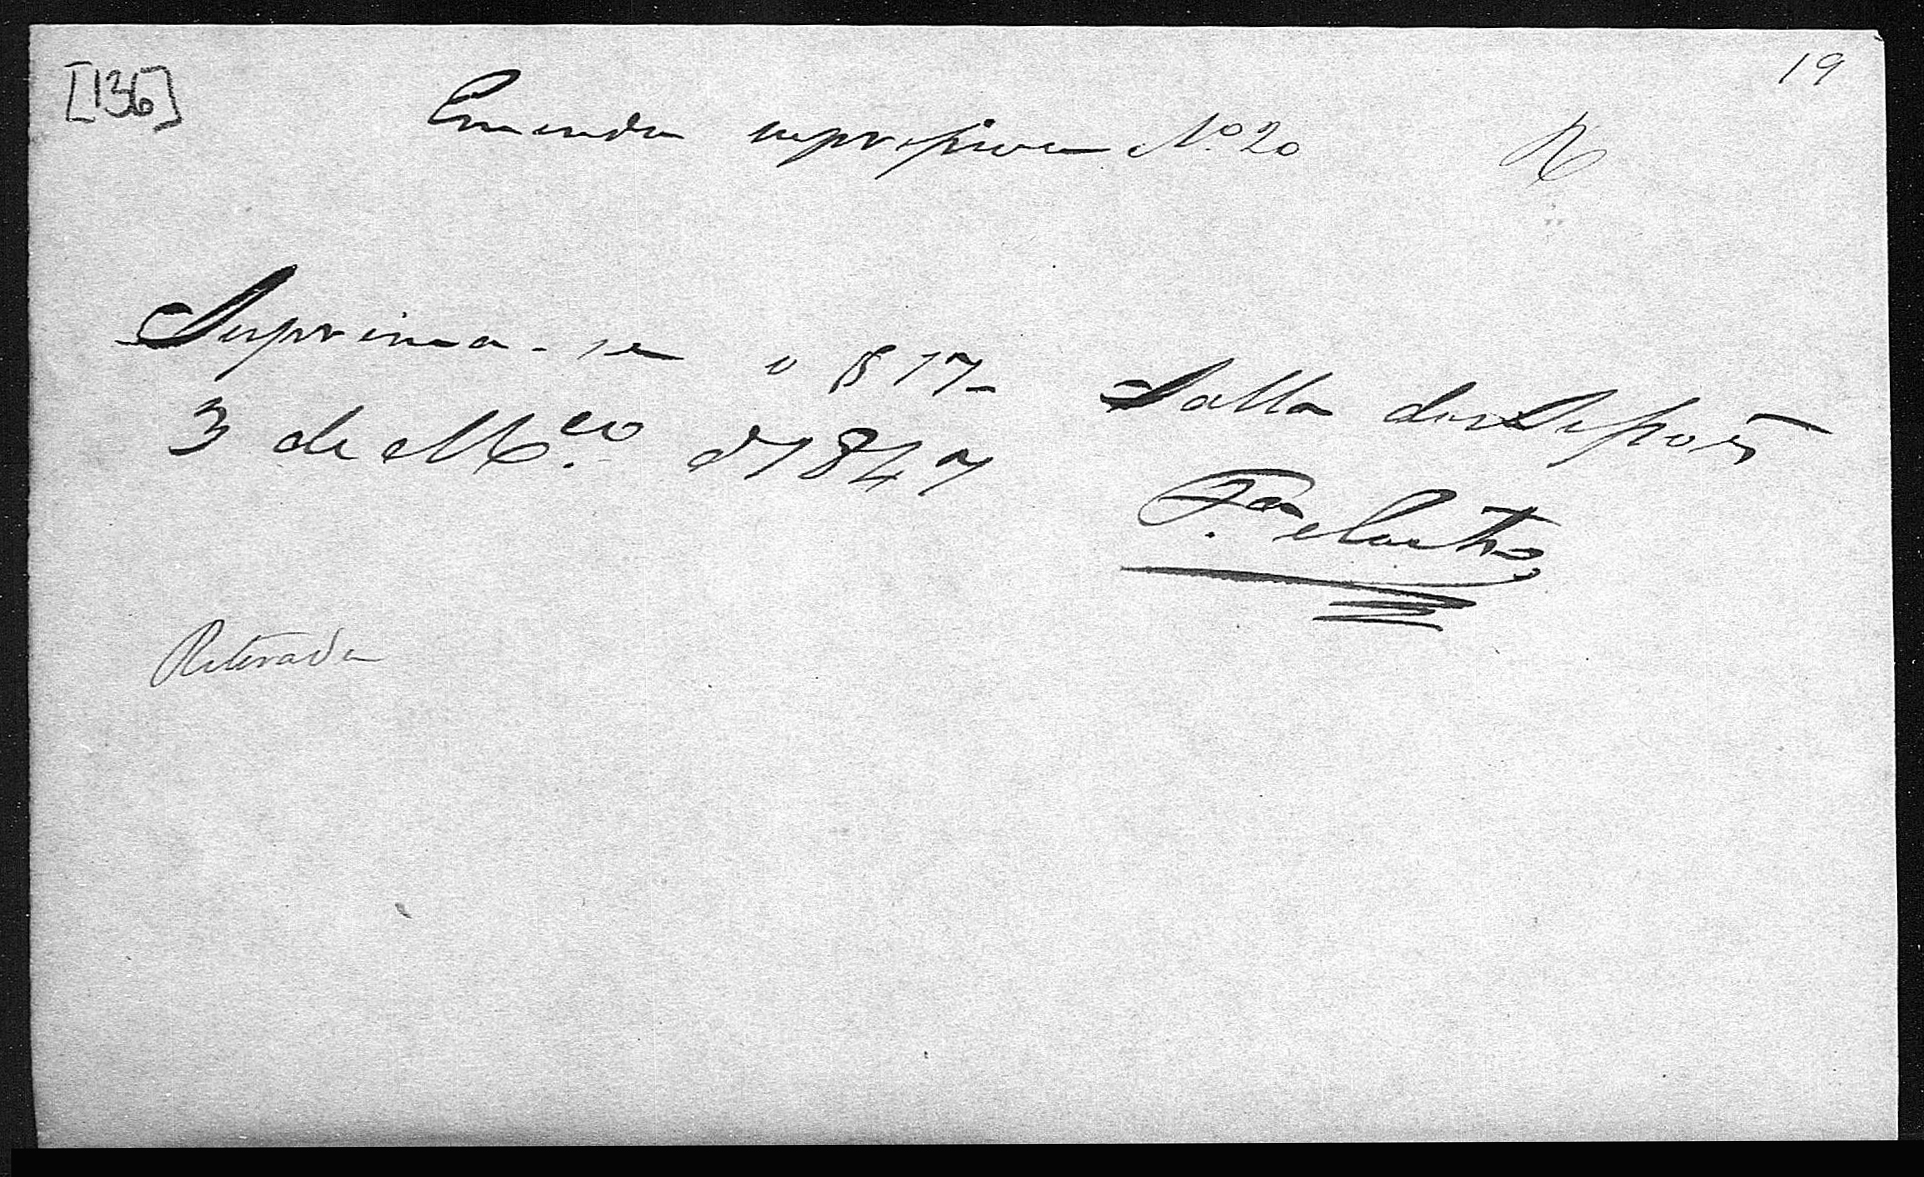 [136]
19
Emenda supressiva Nº 20
R
Suprima-se o § 17 - Salla das Sessões
3 de Mço. d 1847
F. Castro
Retirada